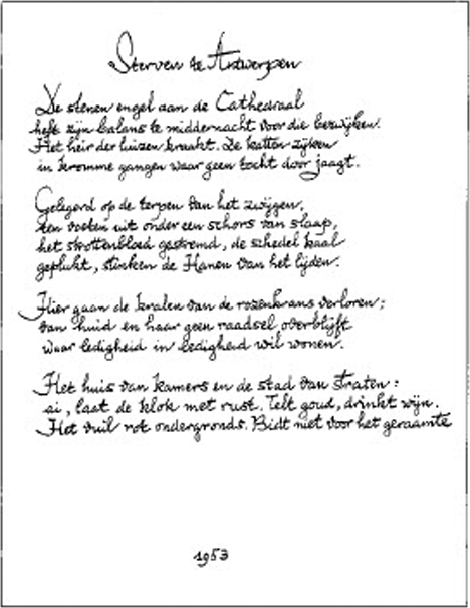 Sterven te Antwerpen
De stenen engel aan de Cathedraal
heft zijn balans te middernacht voor die bezwijken.
Het heir der huizen kraakt. De katten zijken
in kromme gangen waar geen tocht door jaagt.
Gelegerd op de terpen van het zwijgen,
ten voeten uit onder een schors van slaap,
het strottenbloed gestremd, de schedel kaal
geplukt, stinken de Hanen van het lijden.
Hier gaan de kralen van de rozenkrans verloren;
van huid en haar geen raadsel overblijft
waar ledigheid in ledigheid wil wonen.
Het huis van kamers en de stad van straten:
ai, laat de klok met rust. Telt goud, drinkt wijn.
Het vuil rot ondergronds. Bidt niet voor het geraamte
1953